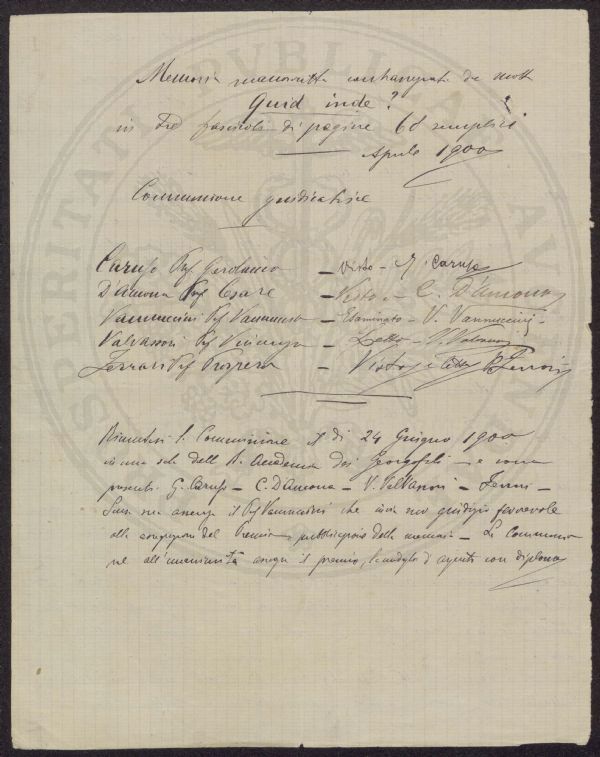 Memoria manoscritta contrassegnata da motto
Quid inde?
in tre fascicoli di pagine 68 semplici
Aprile 1900
Commissione giudicatrice
Caruso Prof Gerolamo – Visto – G. Caruso
D'Ancona Prof Cesare – Visto – C. D'Ancona
Vannuccini Prof Vannuccio – Esaminato – V. Vannuccini
Valvassori Prof Vincenzo – Letto – V. Valvassori
Ferrari Prof Prospero – Visto e letto P. Ferrari
Riunitasi la Commissione il dì 24 Giugno 1900
in una sala dell R. Accademia dei Georgofili – e sono
presenti G. Caruso – C. D'Ancona – V. Valvassori – Ferrari –
Scusa sua assenza il Prof Vannuccini che invia suo giudizio favorevole
alla del Premio pubblicazione della memoria – La Commissio
ne all'unanimità assegna il premio, la medaglia d'argento con diploma